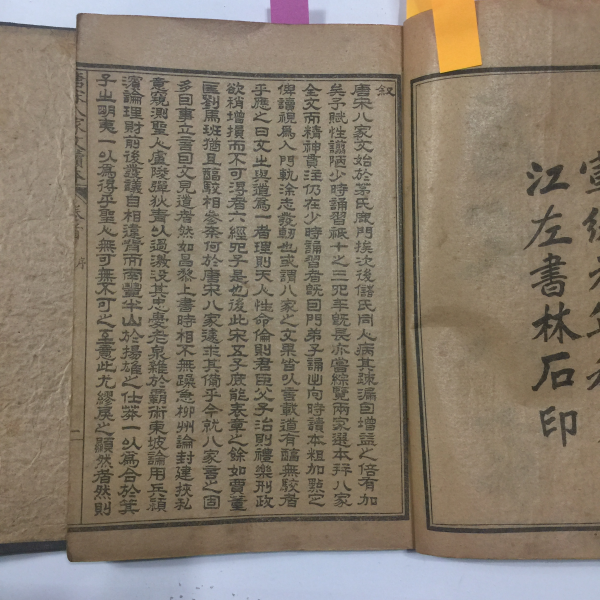 江左書林石印
叙
唐宋八家文始於茅氏鹿門挨次後儲氏同人病其疎漏因增益之倍有加
矣予賦性譾陋少時誦習祗十之三迄年旣長亦嘗綜覽兩家選本拜八家
全文而精神貫注仍在少時誦習者旣因門弟子請出向時讀本粗加點定
俾讀視爲入門軌涂志發軔也或謂八家之文果皆以言載道有醇無駮者
乎應之曰文之與道爲一者理則天人性命倫則君臣父子治則禮樂刑政
欲稍增損而不可得者六經四子是也後此宋五子庶能表章之餘如賈董
匡劉馬班猶且醇駮相參奈何於唐宋八家遽求其備乎今就八家言之固
多因事立言因文見道者然如昌黎上書時相不無躁急柳州論封建挾私
意窺測聖人廬陵彈狄青以過激沒其忠愛老泉雜於霸術東坡論用兵潁
濱論理財前後發議自相違背而南豐半山於揚雄之仕莽一以爲合於箕
子之明夷一以爲得乎聖人無可無不可之至意此尤繆戾之顯然者然則
唐宋八家文讀本 卷首 序 一